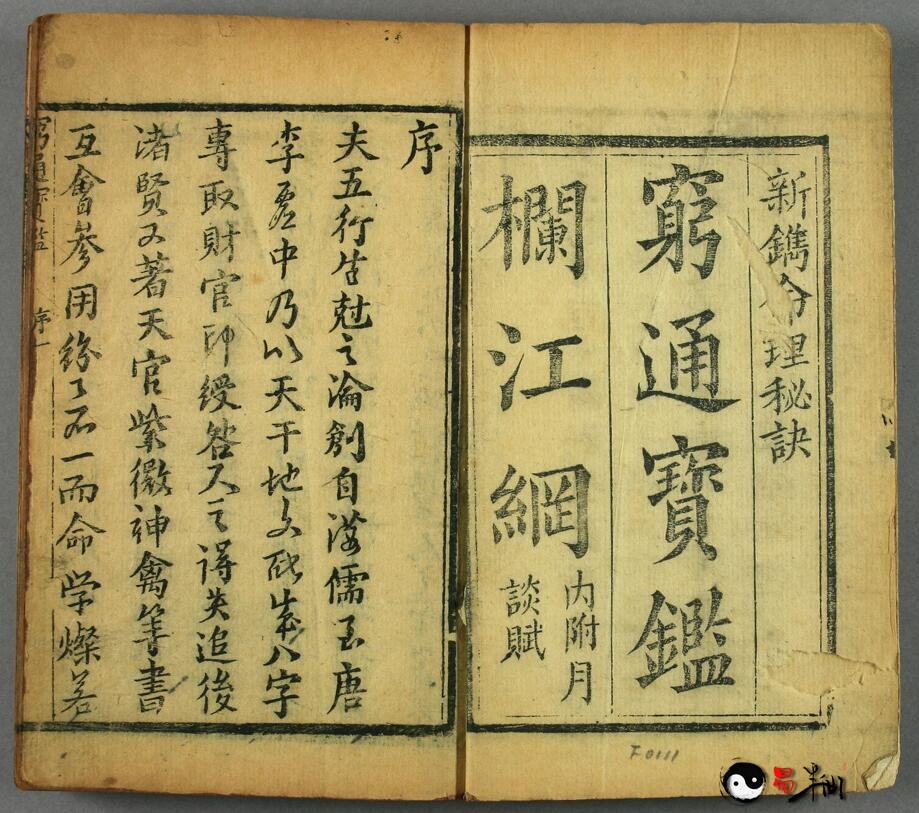 新鐫命理秘訣
窮通寶鑑
欄江網
內附月
談賦
序
夫五行生尅之論創自漢儒至唐
李虛中乃以天干地支配成八字
專取財官印綬咎人之得失追後
諸賢又著天官紫微神禽等書
互會參用紛紛不一而命学燦若
窮通寶鑑 序 一
F0111
易半仙